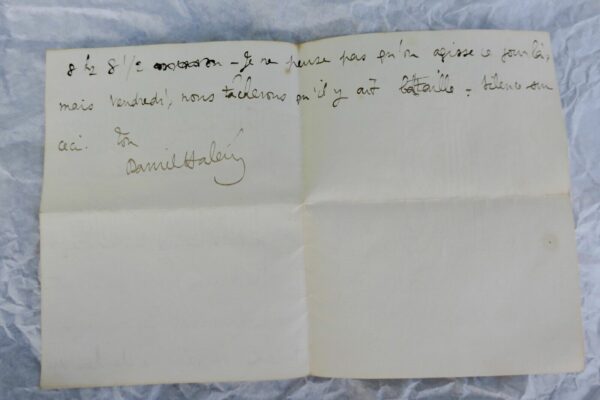 8 h 8 1/2 – Je ne pense pas qu'on agisse ce jour là,
mais vendredi, nous tâcherons qu'il y ait bataille – Silence sur
ceci. Ton
Daniel Halévy